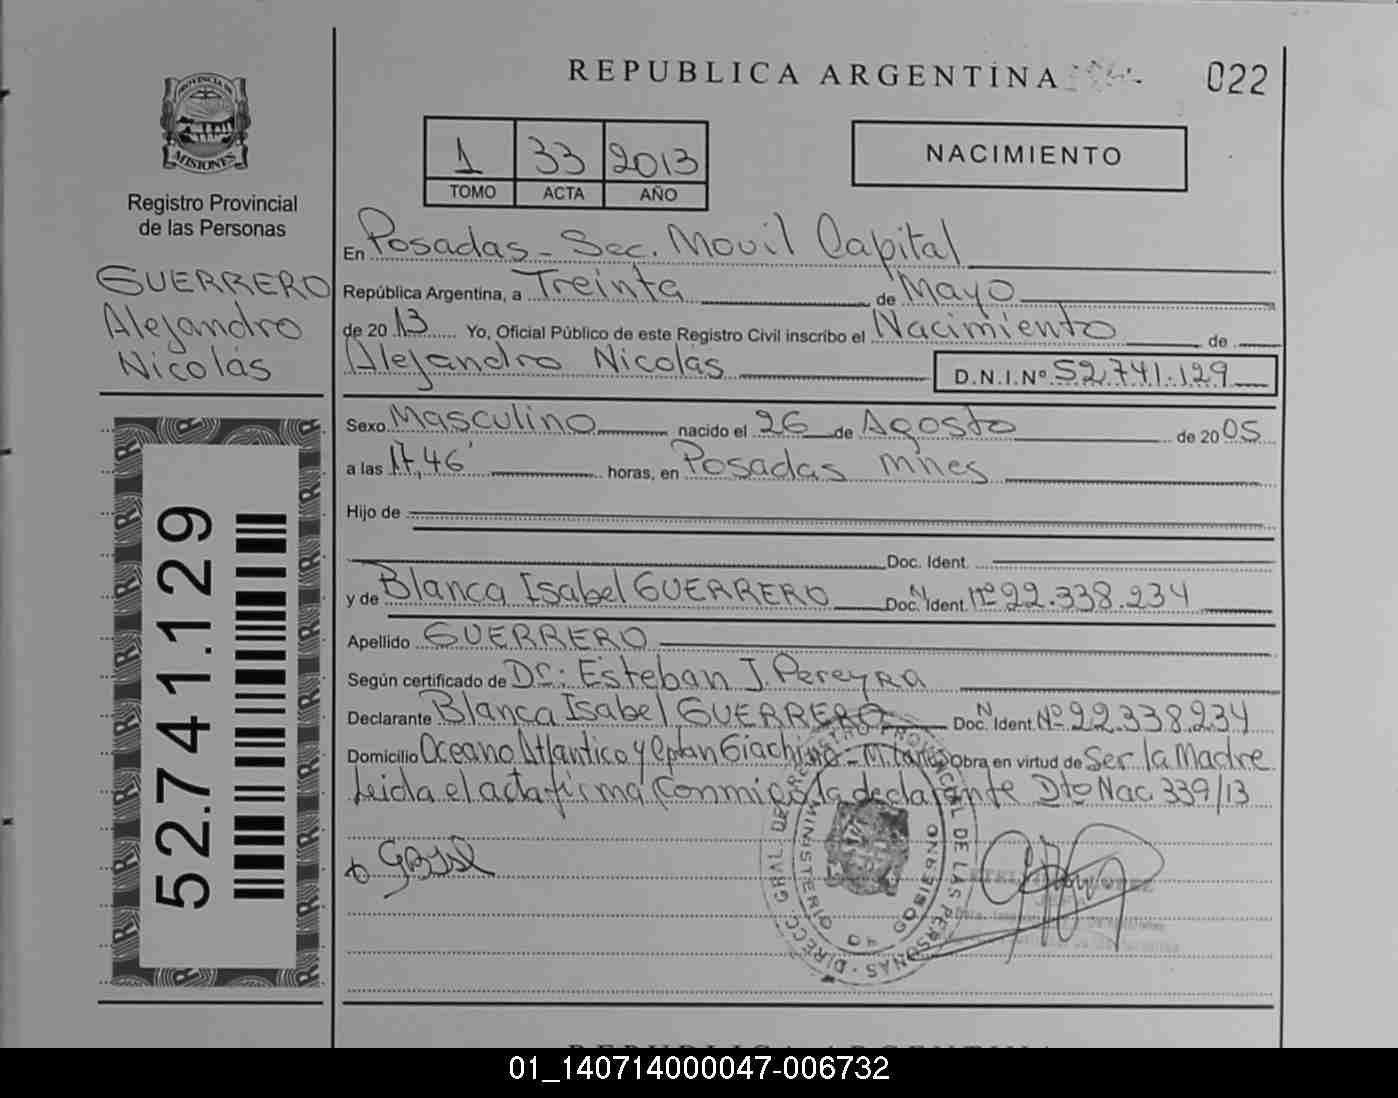 REPUBLICA ARGENTINA
022
PROVINCIA DE
MISIONES
Registro Provincial
de las Personas
GUERRERO
Alejandro
Nicolás
52.741.129
1 33 2013
TOMO ACTA AÑO
NACIMIENTO
En Posadas - Sec. Movil Capital
República Argentina, a Treinta de Mayo
de 2013 Yo, Oficial Público de este Registro Civil inscribo el Nacimiento de
Alejandro Nicolás D.N.I.Nº 52.741.129
Sexo Masculino nacido el 26 de Agosto de 2005
a las 17,46' horas, en Posadas Mnes
Hijo de
Doc. Ident.
y de Blanca Isabel GUERRERO Doc. N Ident. Nº 22.338.234
Apellido GUERRERO
Según certificado de Dr: Esteban J. Pereyra
Declarante Blanca Isabel GUERRERO Doc. N Ident. Nº 22.338.234
Domicilio Oceano Atlantico y Cptan Giachino - M. Obra en virtud de Ser la Madre
Leida el acta firma Conmigo la declarante Dto Nac 339/13
DIRECC. GRAL. DE REGISTRO PROVINCIAL DE LAS PERSONAS
MINISTERIO DE GOBIERNO
REPUBLICA ARGENTINA
01_140714000047-006732